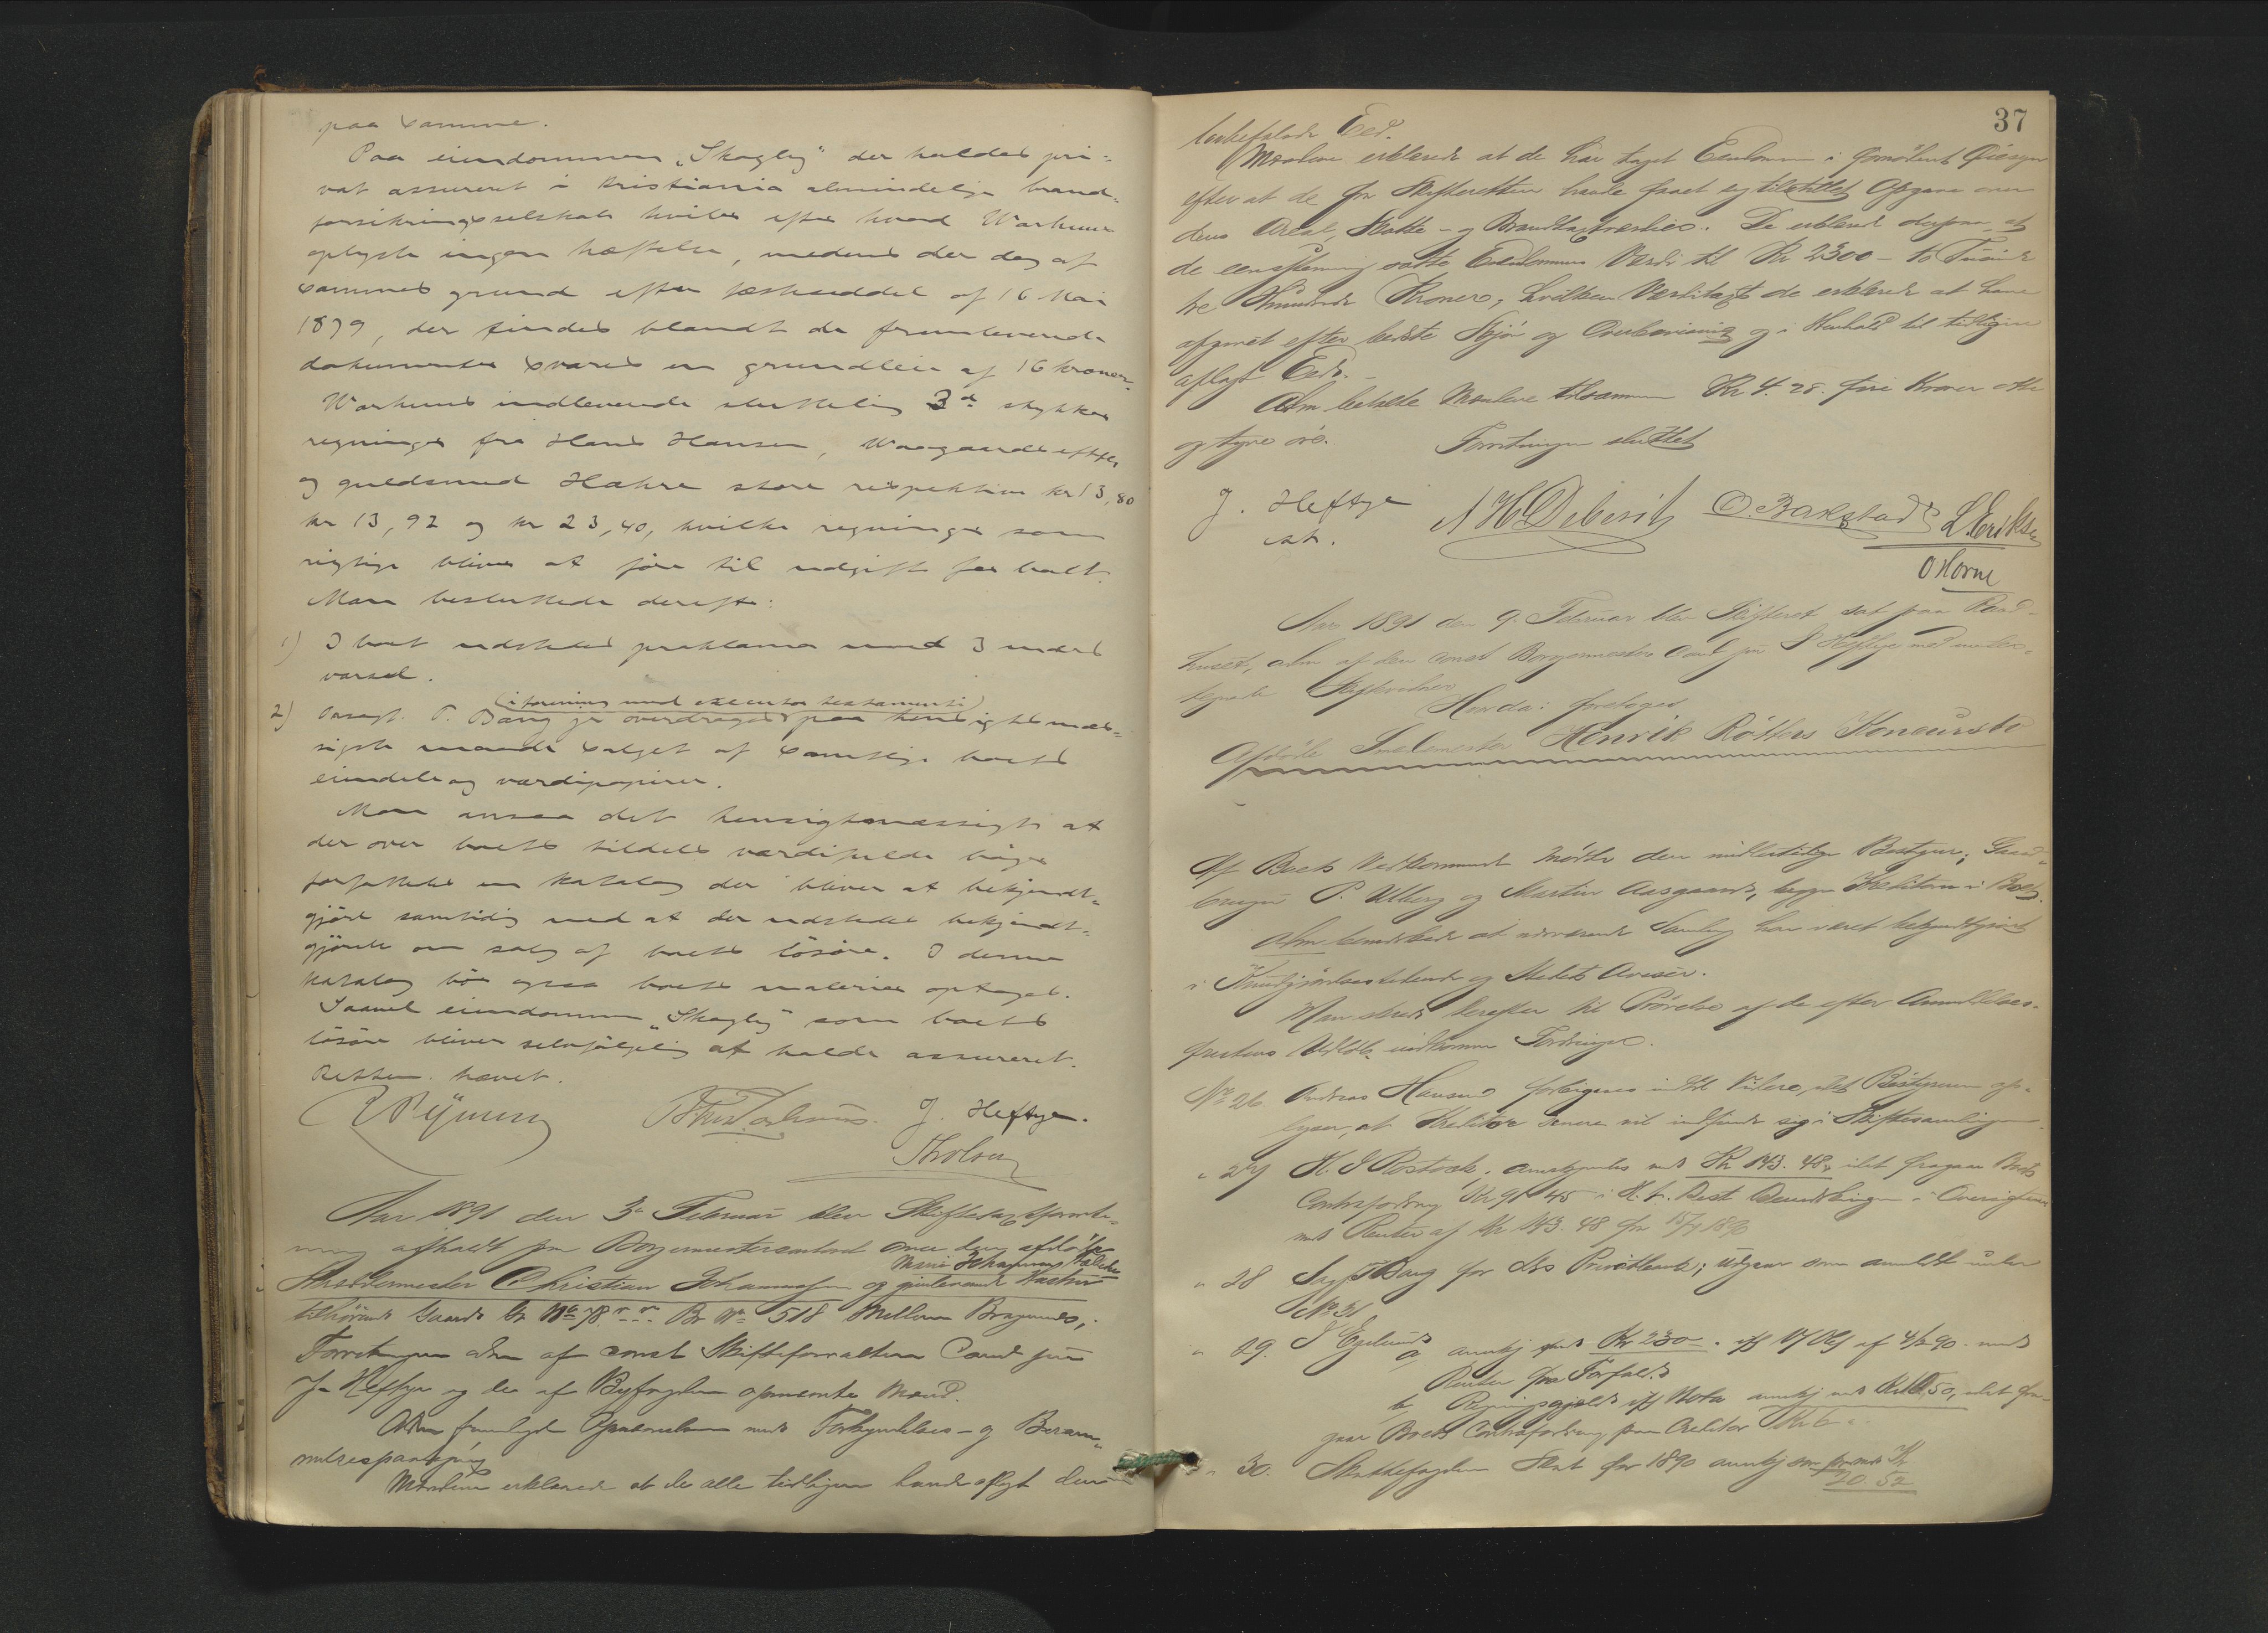 paa samme.
Paa eiendommen "Skogly" der holdes pri-
vat assureret i Kristiania almindelige brand-
forsikringsselskab hviler efter hvad Warhuus
oplyste ingen hæftelse, medens der dog af
sammes grund efter fæsteseddel af 16 Mai
1879, der findes blandt de fremleverede
dokumenter svares en grundleie af 16 kroner.
Warhuus indleverede sluttelig 3de stykker
regninger fra Hans Hansen, Waagaards eftfl
og guldsmed Hæhre store respektive kr 13,80
kr 13,92 og kr 23,40, hvilke regninger som
rigtige bliver at føre til udgift for boet.
Man besluttede derefter:
1) I boet udstedes proklama med 3 mdrs
varsel.
(i forening med executor testamenti)
2) Ovsagf. P. Bang jr overdrages paa hensigtsmæs-
sigste maade salget af samtlige boets
eiendele og værdipapirer.
Man ansaa det hensigtsmæssigt at
der over boets tildels værdifulde bøger
forfattedes en katalog der bliver at bekjendt-
gjøre samtidig med at der udstedes bekjendt-
gjørelse om salg af boets løsøre. I denne
katalog bør ogsaa boets malerier optages.
Saavel eiendommen "Skogly" som boets
løsøre bliver selvfølgelig at holde assureret.
Retten hævet.
J. Heftye.
Aar 1891 den 3de Februar blev Skiftetaxtforret-
ning afholdt paa Borgermesterembedet over den afdøde
Marie Johannesen
Skræddermester Christian Johannesen og gjenlevende Hustru
tilhørende Gaard No 78 Br No 518 Mellem Bragernes,
Forretningen adm af const Skifteforvalteren Cand jur
J. Heftye og de af Byfogden opnævnte Mænd.
Adm fremlagde Opnævnelsen med Forkyndelses- og Beram-
melsespaategning
Mændene erklærede at de alle tidligere havde aflagt den
37
Eed.
Mændene erklærede at de har taget Eiendommen i fornødent Øiesyn
efter at de fra Skifteretten havde faaet sig tilstillet Opgave over
dens Areal, Skatte- og Brandtaxtværdier. De erklærede derpaa at
de eenstemmig satte Eiendommens Værdi til Kr 2300 - to Tusinde
tre Hundrede Kroner, hvilken Værditaxt de erklærede at have
afgivet efter bedste Skjøn og Overbevisning og i Henhold til tidligere
aflagt Eed.
Adm betalte Mændene tilsammen Kr 4.28. fire Kroner otte
og tyve øre. Forretningen sluttet
J. Heftye
cst.
N H Debesitz O. Bakstad L. Eriksen
O Horne
Aar 1891 den 9. Februar blev Skifteret sat paa Raad-
huset, adm af den const Borgermester Cand jur J Heftye med under-
tegnede Skiftevidner
Hvorda: foretoges
Afdøde Smedmester Henrik Röttors Koncursbo
Af Boets Vedkommende mødte den midlertidige Bestyrer, Gaard-
bruger P. Ulberg og Martin Aasgaard, begge Kreditorer i Boet.
Adm bemærkede at nærværende Samling har været bekjendtgjort
i Kundgjørelsestidende og Stedets Aviser.
Man skred derefter til Prøvelse af de efter Anmeldelses-
fristens Udløb indkomne Fordringer.
No 26 Andreas Hansen forbigaaes indtil Videre, idet Bestyreren op-
lyser, at Kreditor senere vil indfinde sig i Skiftesamlingen.
" 27 H. J. Rostock, anerkjendes med Kr 143.48, idet fragaar Boets
Contrafordring Kr 91.45 i H. t. Best Bemærkninger i Oversigten
med Renter af Kr 143.48 fra 15/7 1890
" 28 Sagf. Bang for dbs Privatbank; udgaar som anmeldt under
No 31
" 29. J Eyelund a, anerkj med Kr 230 - iflg Vg Obl af 4/2 90. med
Renter fra Forfald.
b, Regningsgjæld iflg Nota anerkj med Kr 50, idet fra-
gaar Boets Contrafordring paa Creditor Kr 6 -.
" 30. Skattefogden Skat for 1890 anerkj som pr med Kr
20.52